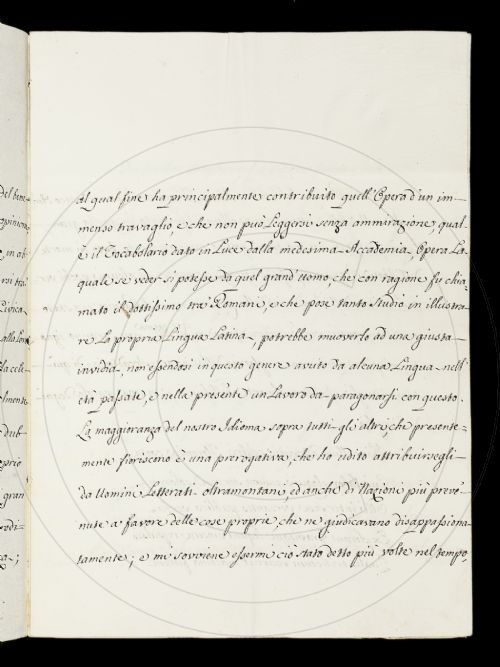 al qual fine ha principalmente contribuito quell'Opera d'un im-
menso travaglio, e che non può leggersi senza ammirazione, qual
è il Vocabolario dato in Luce dalla medesima Accademia, Opera La
quale se veder si potesse da quel grand'Uomo, che con ragione fu chia-
mato il dottissimo tra' Romani, e che pose tanto studio in illustra-
re La propria Lingua Latina, potrebbe muoverlo ad una giusta
invidia, non essendosi in questo genere avuto da alcuna Lingua nell'
età passate, e nella presente un Lavoro da paragonarsi con questo.
La maggioranza del nostro Idioma sopra tutti gli altri, che presente-
mente fioriscono è una prerogativa, che ho udito attribuirsegli
da Uomini Letterati oltramontani, ed anche di Nazioni più preve-
nute a favore delle cose proprie, che ne giudicavano disappassiona-
tamente; e mi sovviene essermi ciò stato detto più volte nel tempo,